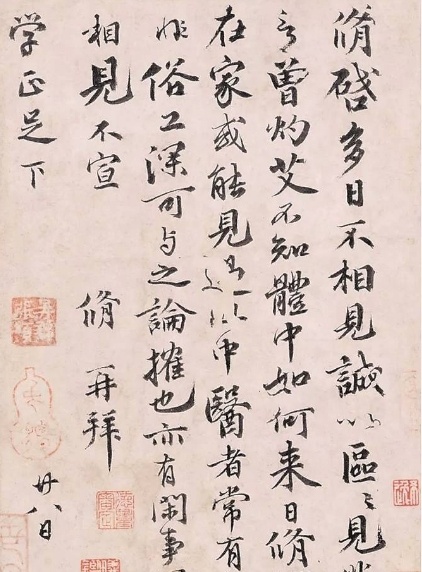 脩啓多日不相見誠以區々見
言曾灼艾不知體中如何来日脩
在家或能見過此中醫者常有
非俗工深可与之論搉也亦有閑事
相見不宣 脩再拜
学正足下
廿八日